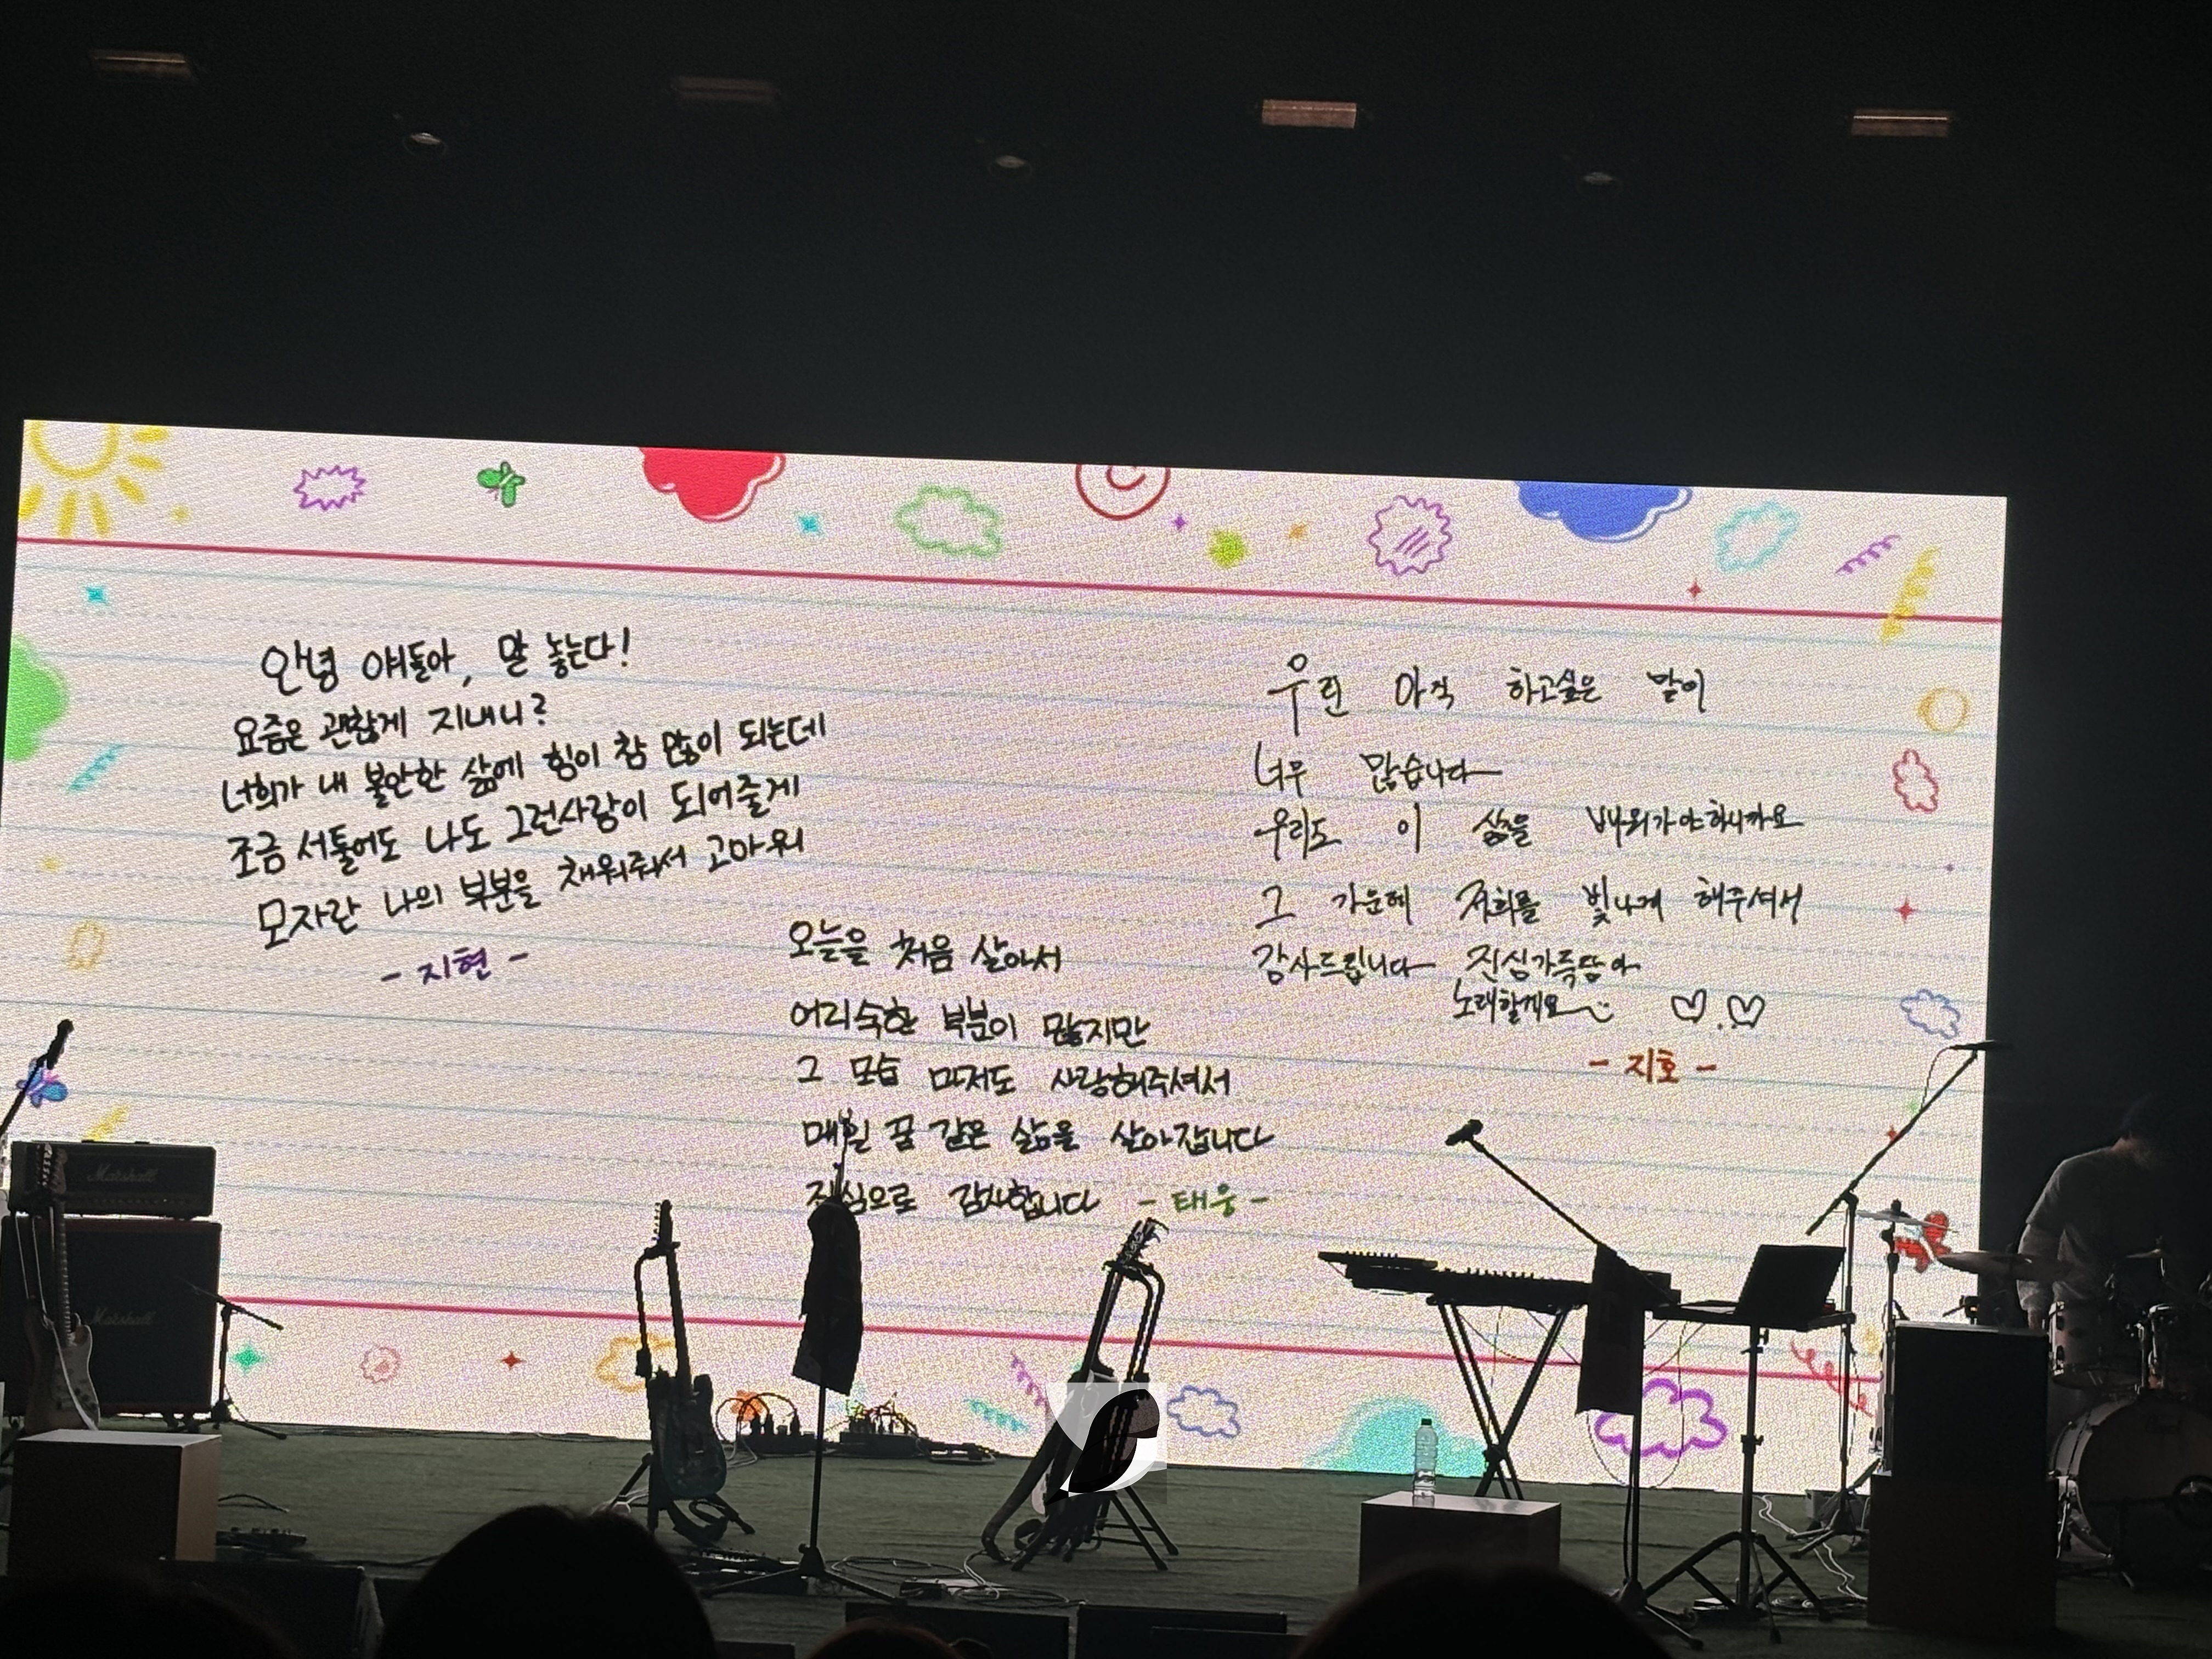 안녕 얘들아, 말 놓는다!
요즘은 괜찮게 지내니?
너희가 내 불안한 삶에 힘이 참 많이 되는데
조금 서툴어도 나도 그런사람이 되어줄게
모자란 나의 부분을 채워줘서 고마워
- 지현 -
오늘을 처음 살아서
어리숙한 부분이 많지만
그 모습 마저도 사랑해주셔서
매일 꿈 같은 삶을 살아갑니다
진심으로 감사합니다 - 태웅 -
우린 아직 하고싶은 말이
너무 많습니다
우리도 이 삶을 배워가야하니까요
그 가운데 저희를 빛나게 해주셔서
감사드립니다 진심가득담아
노래할게요
- 지호 -
Marshall
Marshall